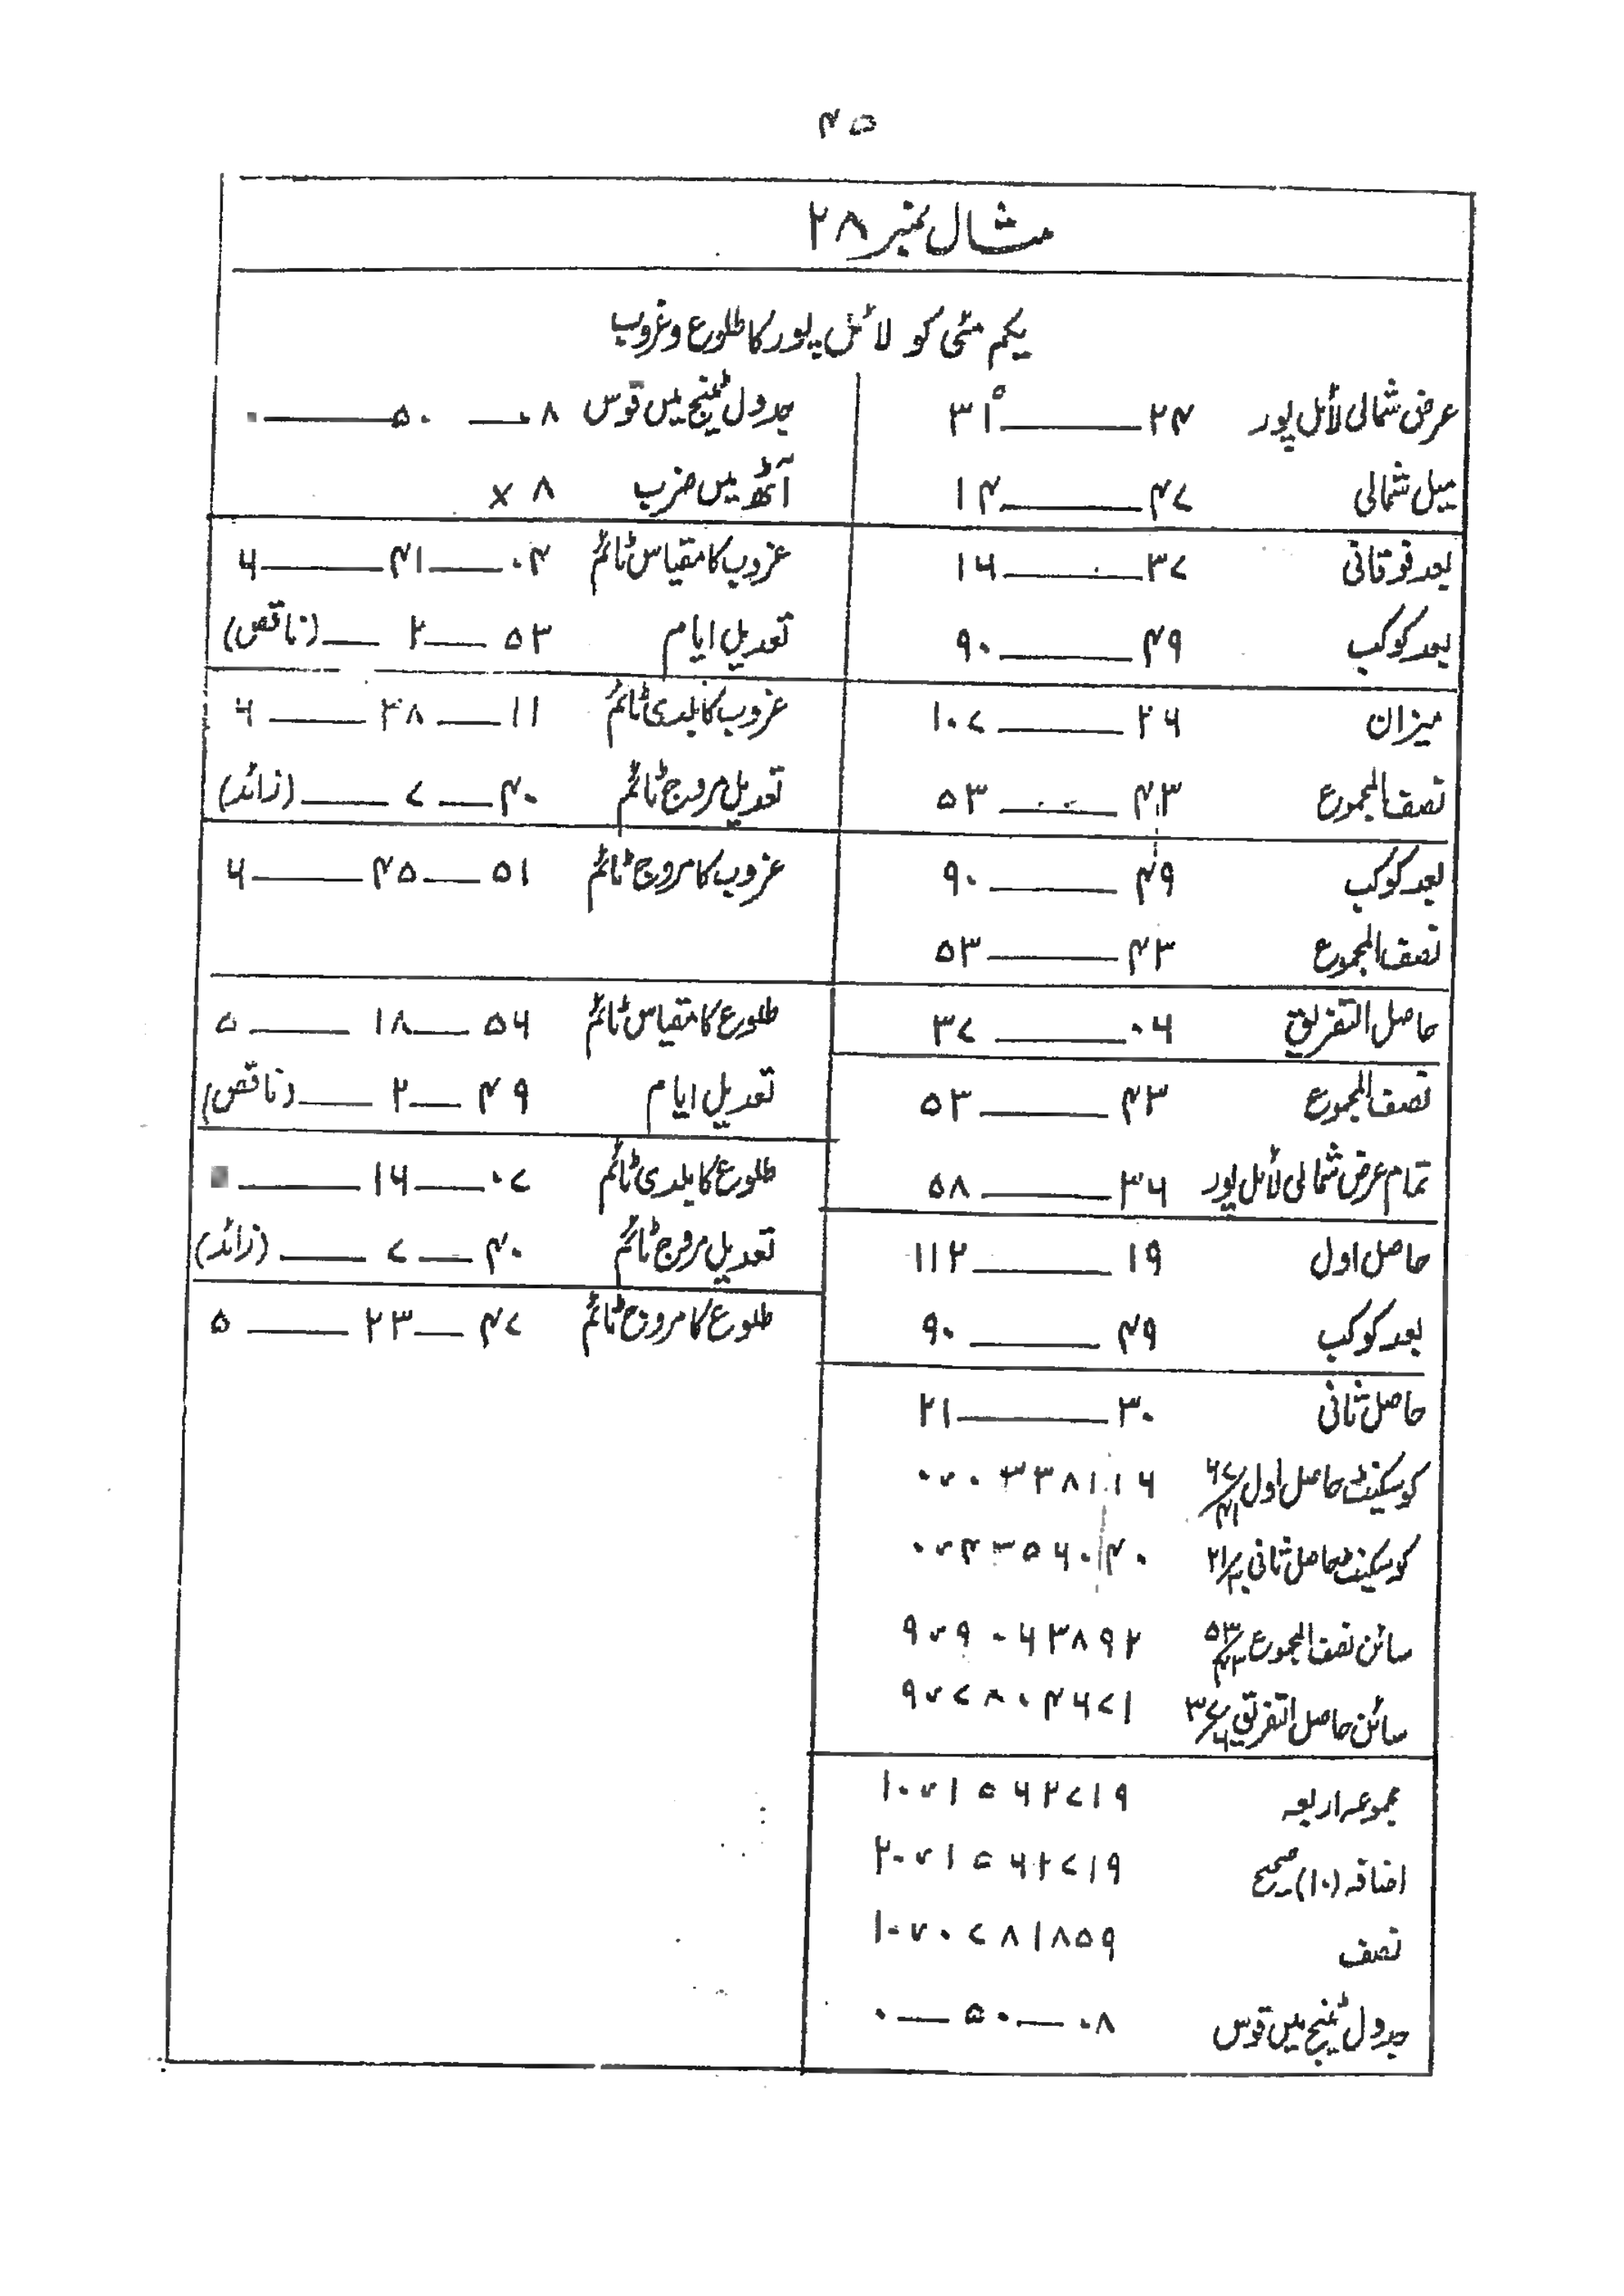 ۴۵
مثال نمبر ۲۸
یکم مئی کو لائل پور کا طلوع و غروب
عرض شمالی لائل پور ۲۴ — ۳۱°
میل شمالی ۴۷ — ۱۴
بعد فوقانی ۳۷ — ۱۶
بعد کوکب ۴۹ — ۹۰
میزان ۲۶ — ۱۰۷
نصف المجموع ۴۳ — ۵۳
بعد کوکب ۴۹ — ۹۰
نصف المجموع ۴۳ — ۵۳
حاصل التفریق ۰۶ — ۳۷
نصف المجموع ۴۳ — ۵۳
تمام عرض شمالی لائل پور ۳۶ — ۵۸
حاصل اول ۱۹ — ۱۱۲
بعد کوکب ۴۹ — ۹۰
حاصل ثانی ۳۰ — ۲۱
کوسیکنٹ حاصل اول ۶۷/۴۱ ۰٫۰۳۳۸۱۱۶
کوسیکنٹ حاصل ثانی ۲۱/۳۰ ۰٫۴۳۵۶۰۴۰
سائن نصف المجموع ۵۳/۴۳ ۹٫۹۰۶۳۸۹۲
سائن حاصل التفریق ۳۷/۶ ۹٫۷۸۰۴۶۷۱
مجموعہ اربعہ ۱۰٫۱۵۶۲۷۱۹
اضافہ (۱۰) صحیح ۲۰٫۱۵۶۲۷۱۹
نصف ۱۰٫۰۷۸۱۸۵۹
جدول ٹینج میں قوس ۰۸ — ۵۰ — ۰
جدول ٹینج میں قوس ۰۸ — ۵۰ — ۰
آٹھ میں ضرب ۸ ×
غروب کا مقیاس ٹائم ۰۴ — ۴۱ — ۶
تعدیل ایام ۵۳ — ۲ — (ناقص)
غروب کا بلدی ٹائم ۱۱ — ۳۸ — ۶
تعدیل مروج ٹائم ۴۰ — ۷ — (زائد)
غروب کا مروج ٹائم ۵۱ — ۴۵ — ۶
طلوع کا مقیاس ٹائم ۵۶ — ۱۸ — ۵
تعدیل ایام ۴۹ — ۲ — (ناقص)
طلوع کا بلدی ٹائم ۰۷ — ۱۶ —
تعدیل مروج ٹائم ۴۰ — ۷ — (زائد)
طلوع کا مروج ٹائم ۴۷ — ۲۳ — ۵